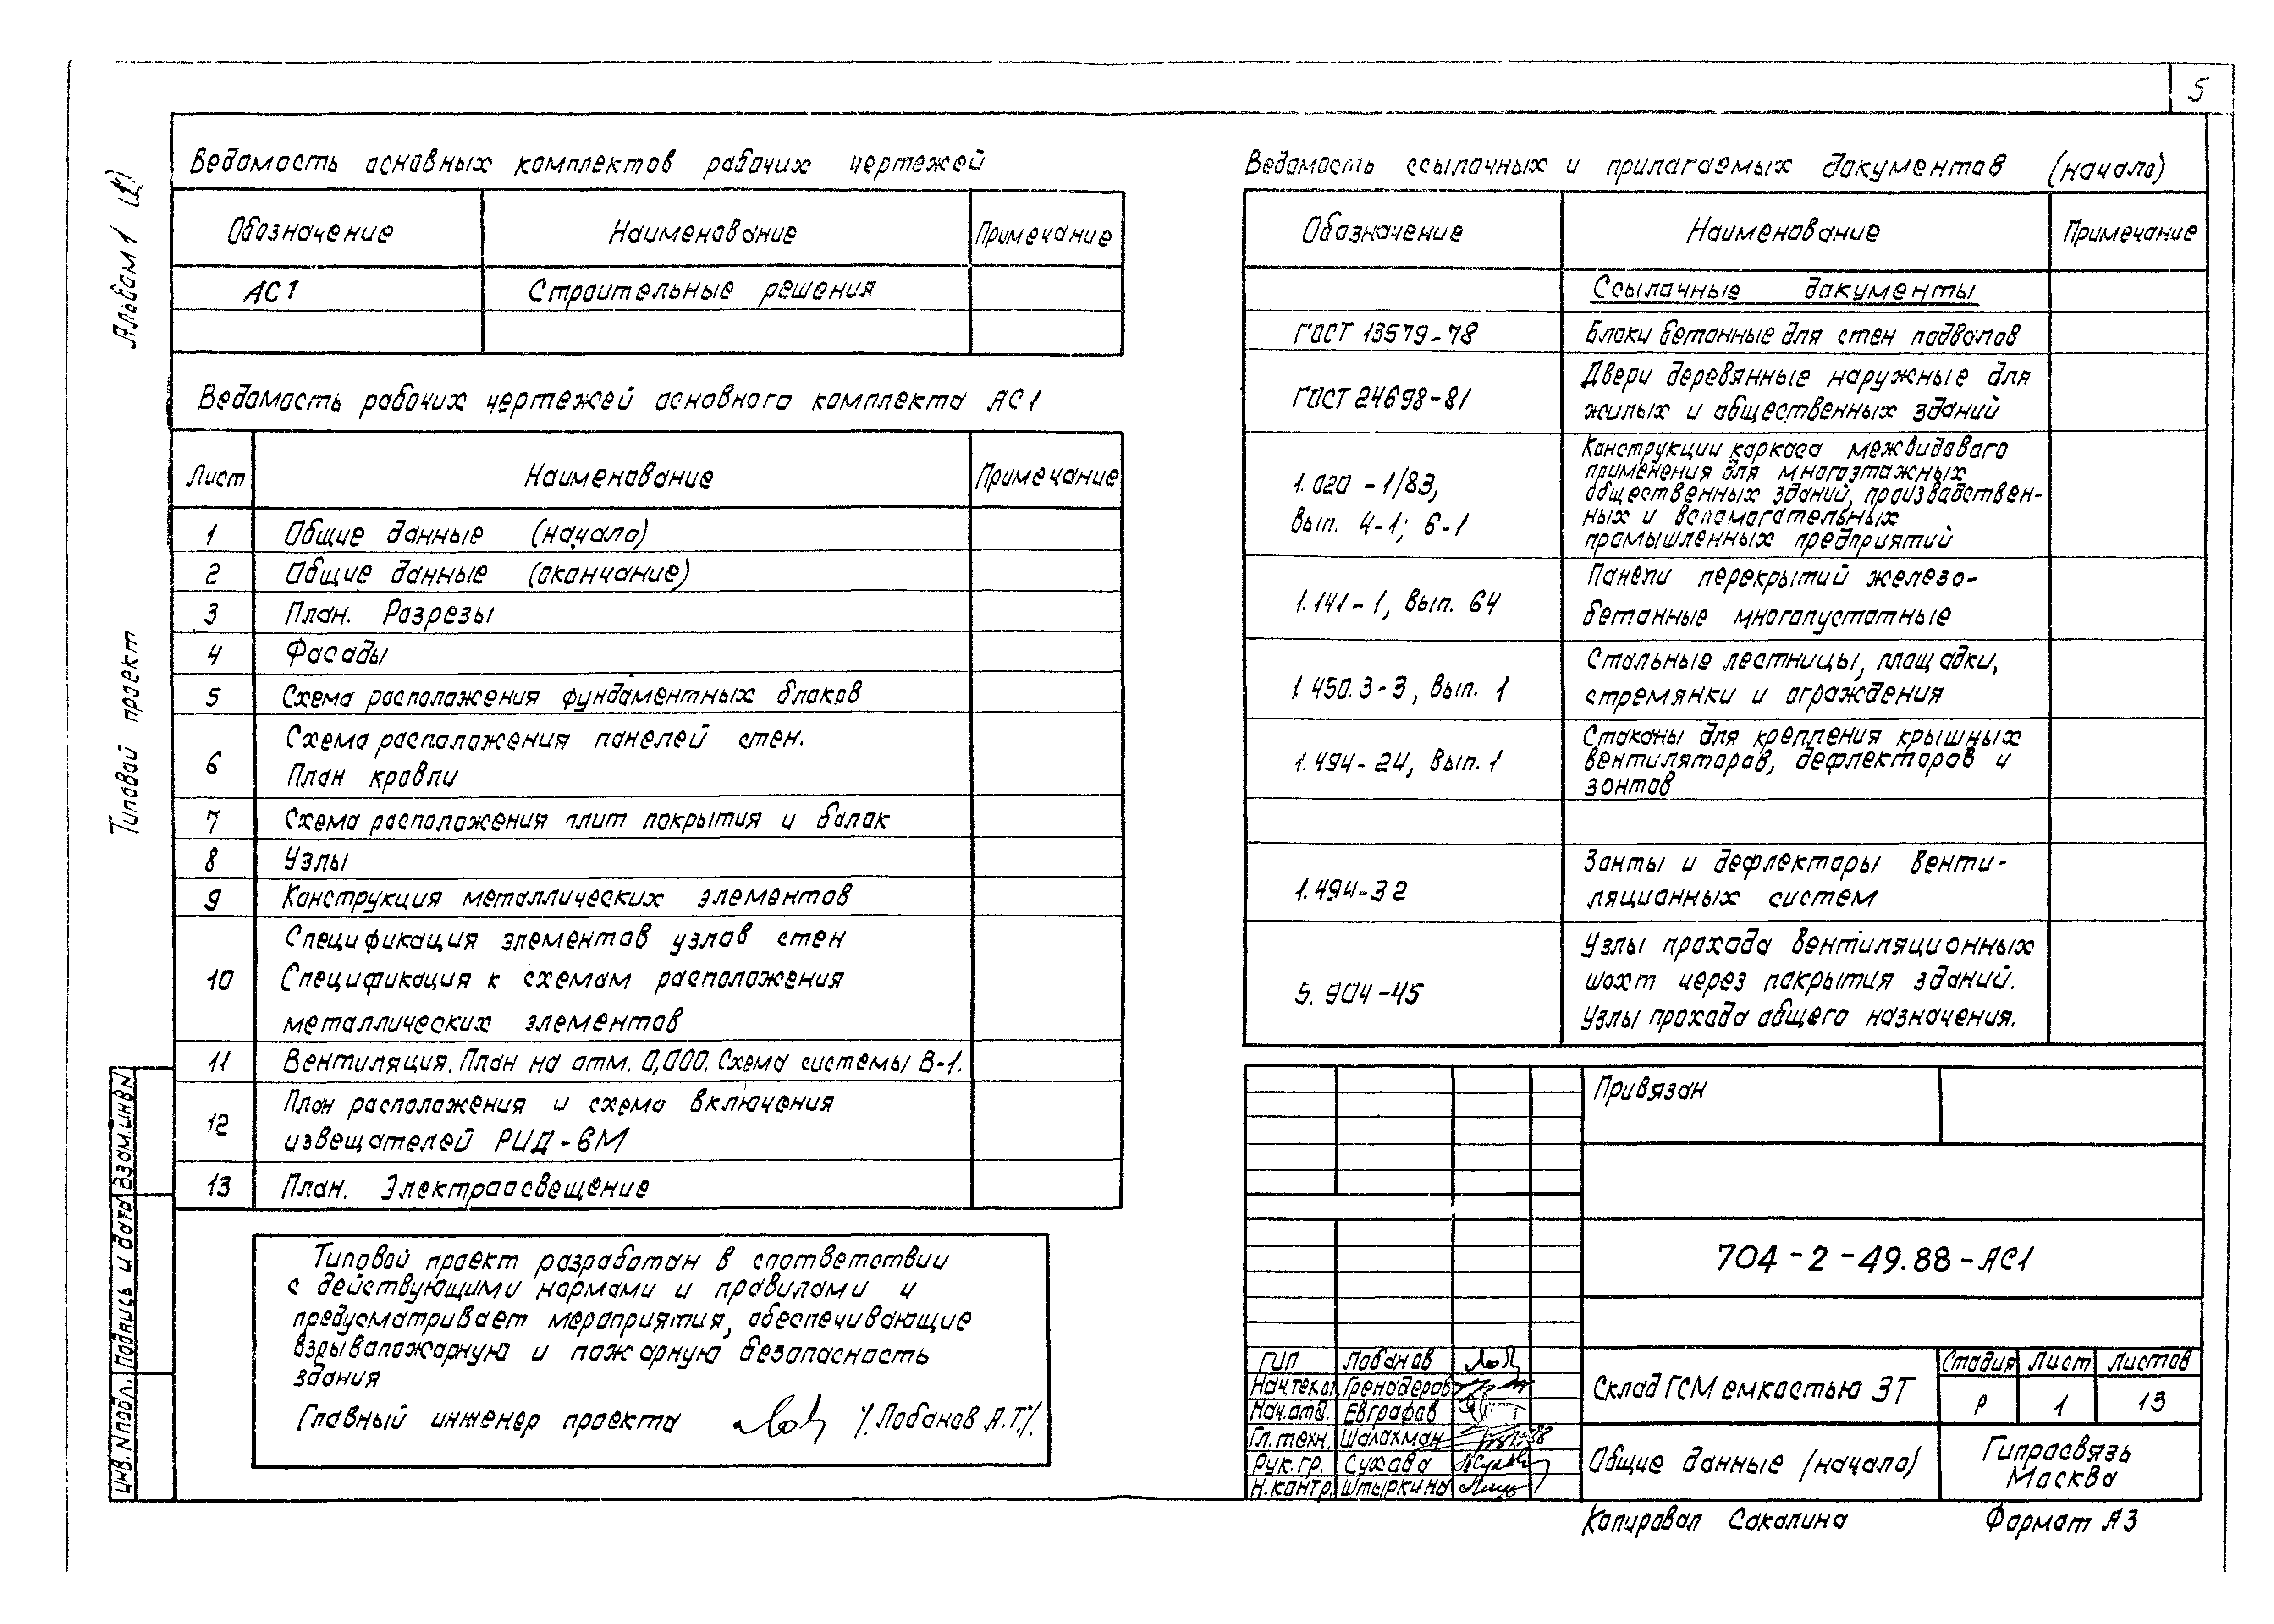 5
Альбом 1
Типовой проект
Ведомость основных комплектов рабочих чертежей
Обозначение Наименование Примечание
АС1 Строительные решения
Ведомость рабочих чертежей основного комплекта АС1
Лист Наименование Примечание
1 Общие данные (начало)
2 Общие данные (окончание)
3 План. Разрезы
4 Фасады
5 Схема расположения фундаментных блоков
6 Схема расположения панелей стен.
План кровли
7 Схема расположения плит покрытия и балок
8 Узлы
9 Конструкция металлических элементов
10 Спецификация элементов узлов стен
Спецификация к схемам расположения
металлических элементов
11 Вентиляция. План на отм. 0,000. Схема системы В-1.
12 План расположения и схема включения
извещателей РИД-6М
13 План. Электроосвещение
Типовой проект разработан в соответствии
с действующими нормами и правилами и
предусматривает мероприятия, обеспечивающие
взрывопожарную и пожарную безопасность
здания
Главный инженер проекта /Лобанов А.Т./
Ведомость ссылочных и прилагаемых документов (начало)
Обозначение Наименование Примечание
Ссылочные документы
ГОСТ 13579-78 Блоки бетонные для стен подвалов
ГОСТ 24698-81 Двери деревянные наружные для
жилых и общественных зданий
1.020-1/83,
Вып. 4-1; 6-1
Конструкции каркаса межвидового
применения для многоэтажных
общественных зданий, производствен-
ных и вспомогательных
промышленных предприятий
1.141-1, Вып. 64 Панели перекрытий железо-
бетонные многопустотные
1.450.3-3, Вып. 1 Стальные лестницы, площадки,
стремянки и ограждения
1.494-24, Вып. 1 Стаканы для крепления крышных
вентиляторов, дефлекторов и
зонтов
1.494-32 Зонты и дефлекторы венти-
ляционных систем
5.904-45 Узлы прохода вентиляционных
шахт через покрытия зданий.
Узлы прохода общего назначения.
Привязан
704-2-49.88-АС1
ГИП Лобанов
Нач.техот Гренадеров
Нач.отд. Евграфов
Гл.техн. Шолохман
Рук.гр. Сухова
Н.контр. Штыркина
Склад ГСМ емкостью 3Т
Стадия Лист Листов
Р 1 13
Общие данные (начало)
Гипросвязь
Москва
Копировал Соколина Формат А3
Инв.N подл. Подпись и дата Взам.инв.N